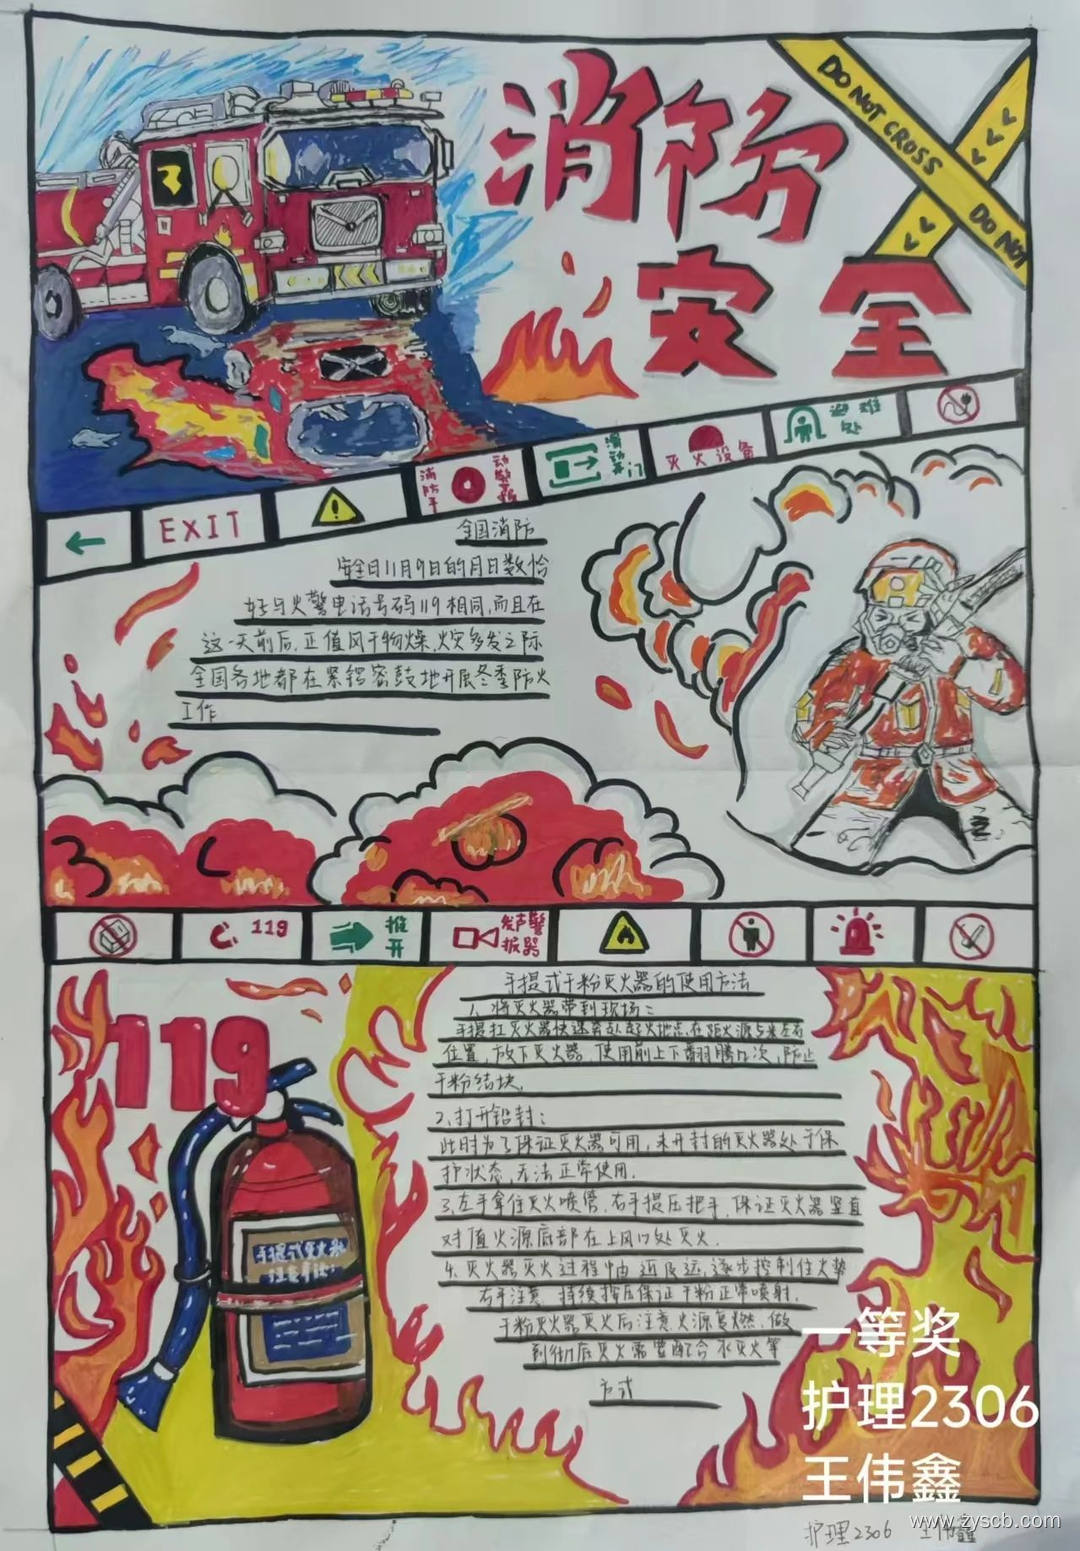 消防
安全
DO NOT CROSS
DO NOT
消防手动警报
滑动开门
灭火设备
避难处
EXIT
全国消防
安全日11月9日的月日数恰
好与火警电话号码119相同,而且在
这一天前后,正值风干物燥,火灾多发之际
全国各地都在紧锣密鼓地开展冬季防火
工作
119
推开
发声警报器
手提式干粉灭火器的使用方法
1、将灭火器带到现场:
位置,放下灭火器,使用前上下翻腾几次,防止
干粉结块.
2、打开铅封:
此时为了保证灭火器可用,未开封的灭火器处于保
护状态,无法正常使用.
3.左手拿住灭火喷管,右手提压把手,保证灭火器竖直
对值火源底部在上风口处灭火.
4.灭火器灭火过程中由近及远,逐步控制住火势
右手注意 持续按压保证干粉正常喷射.
干粉灭火器灭火后注意火源复燃.做
到彻底灭火需要配合水灭火等
方式
119
一等奖
护理2306
王伟鑫
护理2306 王伟鑫
www.zyscb.com